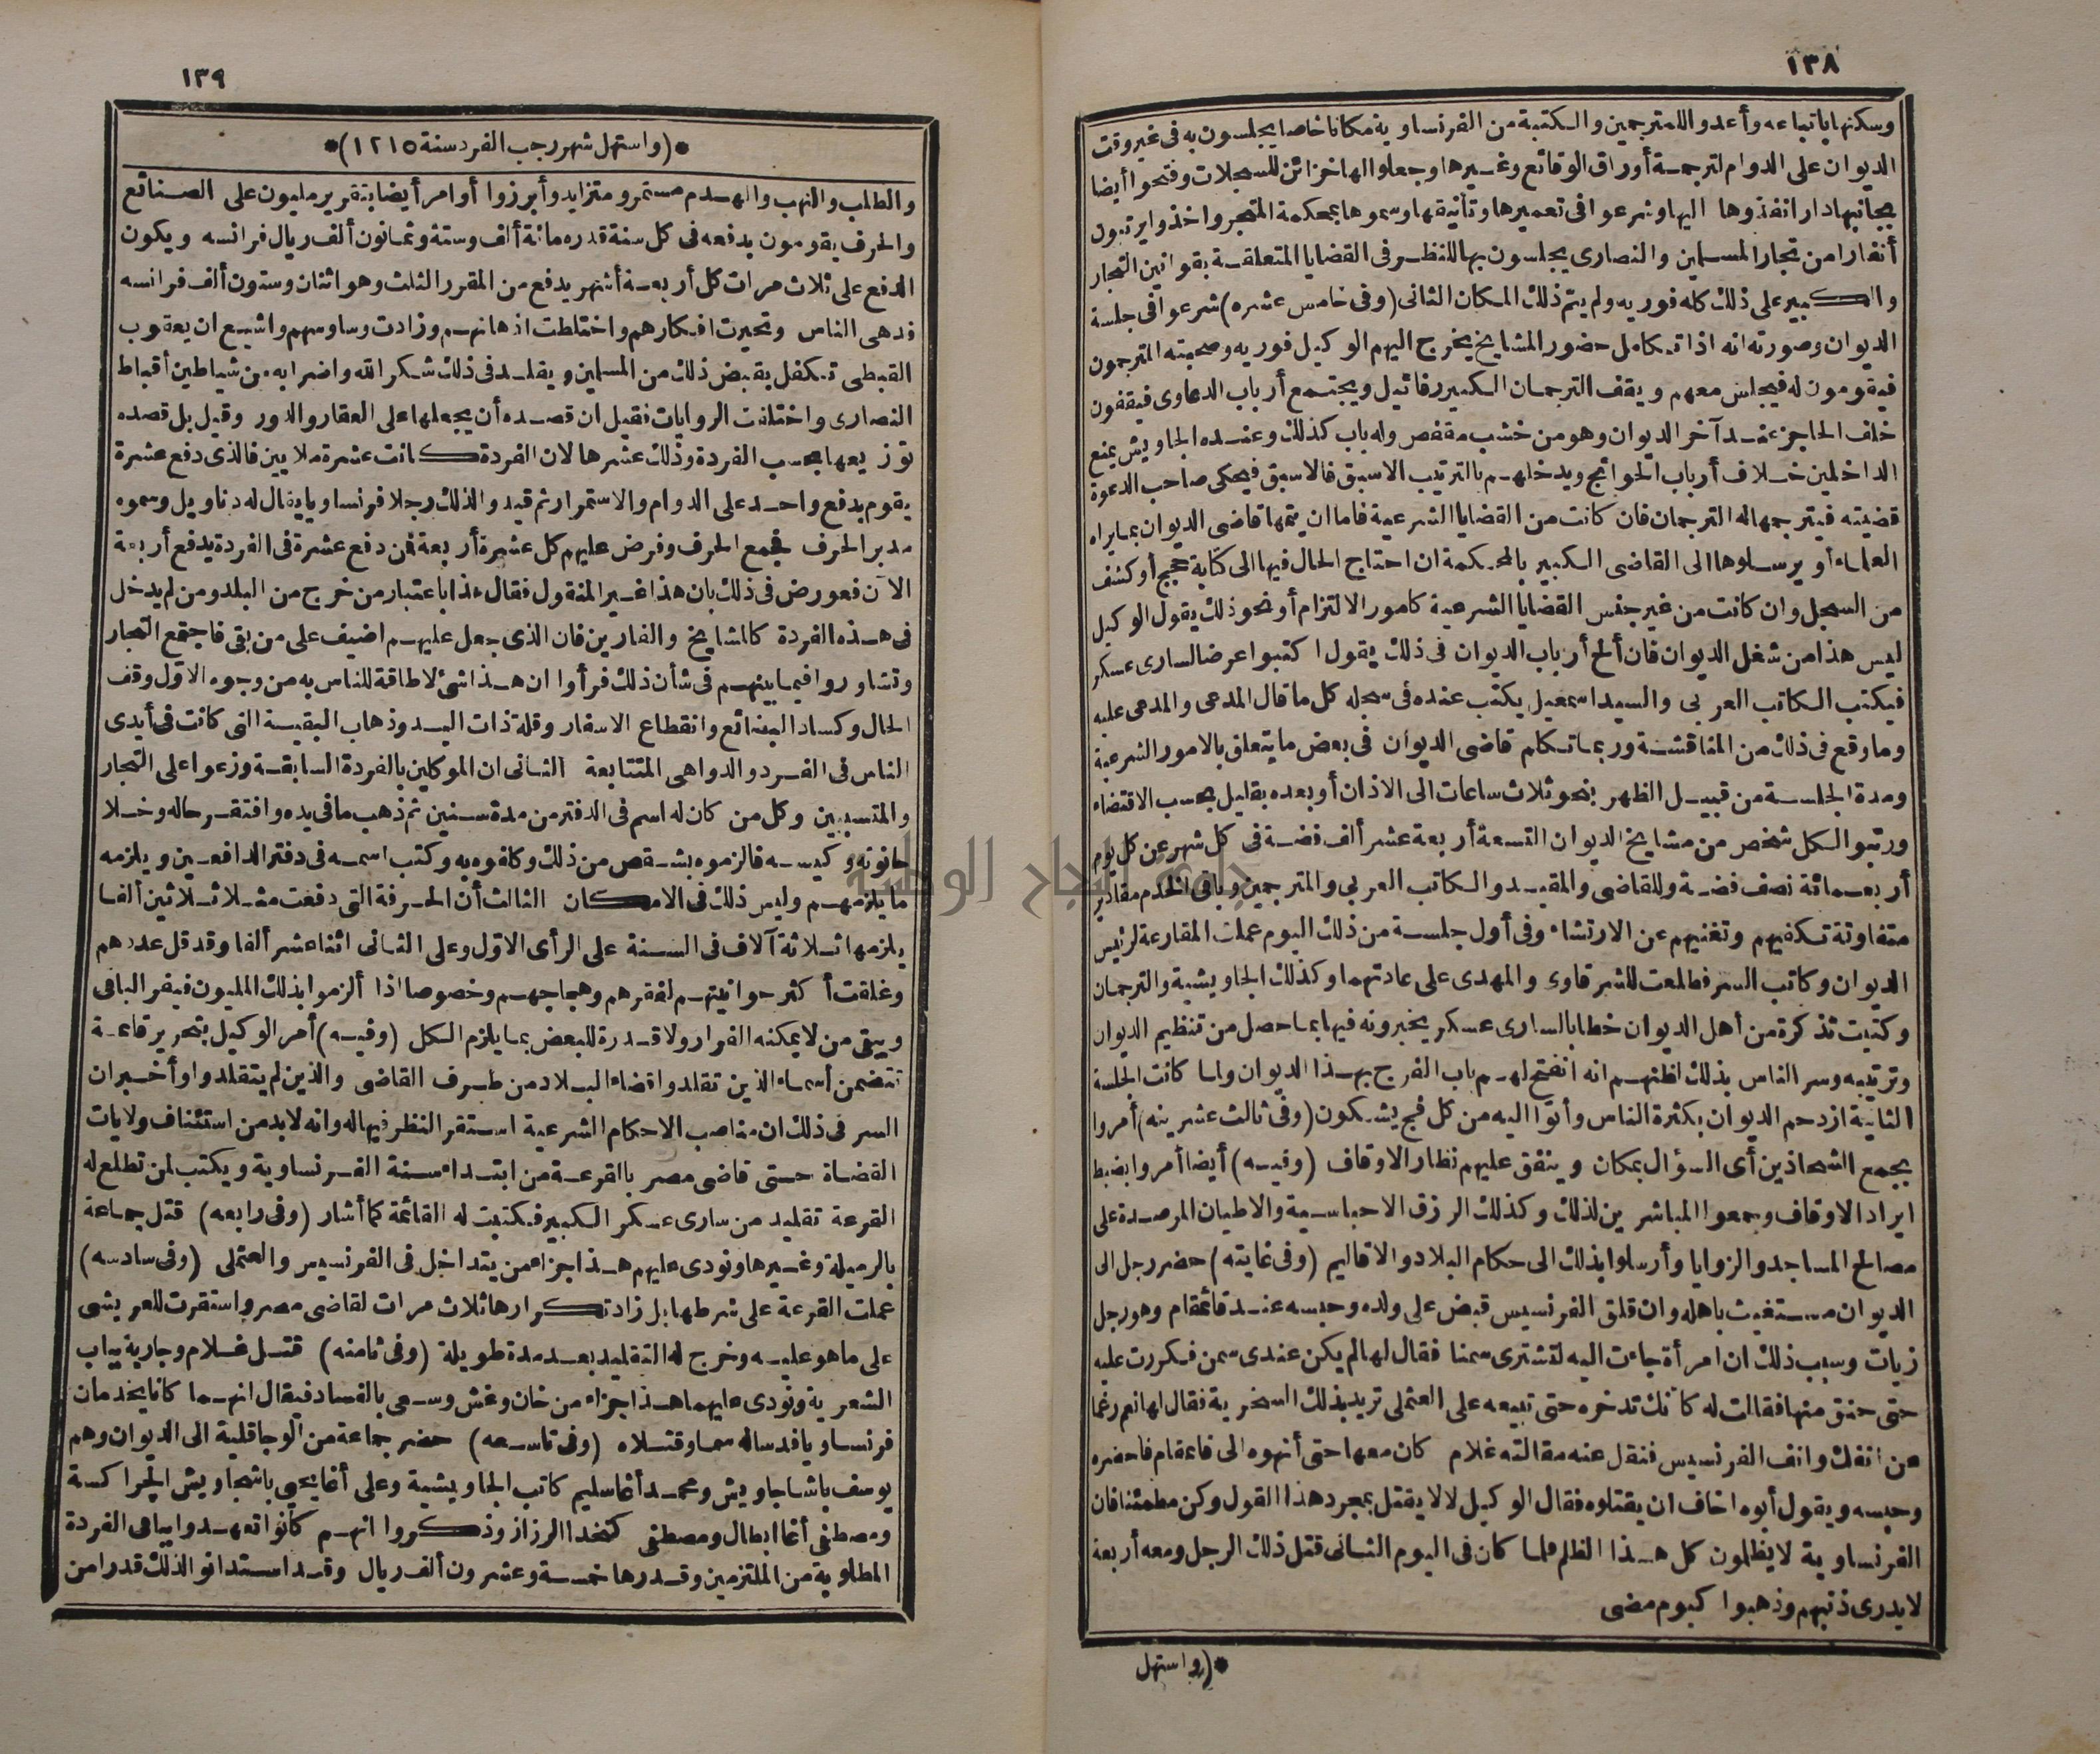 ١٣٨
وسكنها باتباعه وأعدوا للمترجمين والكتبة من الفرنساوية مكانا خاصا يجلسون به فى غير وقت
الديوان على الدوام لترجمة أوراق الوقائع وغيرها وجعلوا لها خزائن للسجلات وفتحوا أيضا
بجانبها دارا نفذوها اليها وشرعوا فى تعميرها وتأنيقها وسموها بمحكمة المتجر وأخذوا يرتبون
أنفارا من تجار المسلمين والنصارى يجلسون بها للنظر فى القضايا المتعلقة بقوانين التجار
والكبير على ذلك كله فوريه ولم يتم ذلك المكان الثانى (وفى خامس عشره) شرعوا فى جلسة
الديوان وصورته انه اذا تكامل حضور المشايخ يخرج اليهم الوكيل فوريه وصحبته المترجمون
فيقومون له فيجلس معهم ويقف الترجمان الكبير رفائيل ويجتمع أرباب الدعاوى فيقفون
خلف الحاجز عند آخر الديوان وهو من خشب مقفص وله باب كذلك وعنده الجاويش يمنع
الداخلين خلاف أرباب الحوائج ويدخلهم بالترتيب الاسبق فالاسبق فيحكى صاحب الدعوة
قضيته فيترجمها له الترجمان فان كانت من القضايا الشرعية فاما ان يتمها قاضى الديوان بما يراه
العلماء أو يرسلوها الى القاضى الكبير بالمحكمة ان احتاج الحال فيها الى كتابة حجج أو كشف
من السجل وان كانت من غير جنس القضايا الشرعية كامور الالتزام أو نحو ذلك يقول الوكيل
ليس هذا من شغل الديوان فان ألح أرباب الديوان فى ذلك يقول اكتبوا عرضا لسارى عسكر
فيكتب الكاتب العربى والسيد اسمعيل يكتب عنده فى سجله كل ما قال المدعى والمدعى عليه
وما وقع فى ذلك من المناقشة وربما تكلم قاضى الديوان فى بعض ما يتعلق بالامور الشرعية
ومدة الجلسة من قبيل الظهر بنحو ثلاث ساعات الى الاذان أو بعده بقليل بحسب الاقتضاء
ورتبوا لكل شخص من مشايخ الديوان التسعة أربعة عشر ألف فضة فى كل شهر عن كل يوم
أربعمائة نصف فضة وللقاضى والمقيد والكاتب العربى والمترجمين وباقى الخدم مقادير
متفاوتة تكفيهم وتغنيهم عن الارتشاء وفى أول جلسة من ذلك اليوم عملت المقارعة لرئيس
الديوان وكاتب السر فطلعت للشرقاوى والمهدى على عادتهما وكذلك الجاويشية والترجمان
وكتبت تذكرة من أهل الديوان خطابا لسارى عسكر يخبرونه فيها بما حصل من تنظيم الديوان
وترتيبه وسر الناس بذلك لظنهم انه انفتح لهم باب الفرج بهذا الديوان ولما كانت الجلسة
الثانية ازدحم الديوان بكثرة الناس وأتوا اليه من كل فج يشكون (وفى ثالث عشرينه) أمروا
بجمع الشحاذين أى السؤال بمكان وينفق عليهم نظار الاوقاف (وفيه) أيضا أمروا بضبط
ايراد الاوقاف وجمعوا المباشرين لذلك وكذلك الرزق الاحباسية والاطيان المرصدة على
مصالح المساجد والزوايا وأرسلوا بذلك الى حكام البلاد والاقاليم (وفى غايته) حضر رجل الى
الديوان مستغيث باهله وان قلق الفرنسيس قبض على ولده وحبسه عند قائمقام وهو رجل
زيات وسبب ذلك ان امرأة جاءت اليه لتشترى سمنا فقال لها لم يكن عندى سمن فكررت عليه
حتى حنق منها فقالت له كأنك تدخره حتى تبيعه على العثملى تريد بذلك السخرية فقال لها نعم رغما
عن انفك وانف الفرنسيس فنقل عنه مقالته غلام كان معها حتى أنهوه الى قائمقام فاحضره
وحبسه ويقول أبوه اخاف ان يقتلوه فقال الوكيل لا لا يقتل بمجرد هذا القول وكن مطمئنا فان
الفرنساوية لا يظلمون كل هذا الظلم فلما كان فى اليوم الثانى قتل ذلك الرجل ومعه أربعة
لا يدرى ذنبهم وذهبوا كيوم مضى
*(واستهل
١٣٩
*(واستهل شهر رجب الفرد سنة ١٢١٥)*
والطلب والنهب والهدم مستمر ومتزايد وأبرزوا أوامر أيضا بتقرير مليون على الصنائع
والحرف يقومون بدفعه فى كل سنة قدره مائة ألف وستة وثمانون ألف ريال فرانسه ويكون
الدفع على ثلاث مرات كل أربعة أشهر يدفع من المقرر الثلث وهو اثنان وستون ألف فرانسه
فدهى الناس وتحيرت افكارهم واختلطت اذهانهم وزادت وساوسهم واشيع ان يعقوب
القبطى تكفل بقبض ذلك من المسلمين ويقلد فى ذلك شكر الله واضرابه من شياطين أقباط
النصارى واختلفت الروايات فقيل ان قصده أن يجعلها على العقار والدور وقيل بل قصده
توزيعها بحسب الفردة وذلك عشرها لان الفردة كانت عشرة ملايين فالذى دفع عشرة
يقوم بدفع واحد على الدوام والاستمرار ثم قيدوا لذلك رجلا فرنساويا يقال له دناويل وسموه
مدبر الحرف فجمع الحرف وفرض عليهم كل عشرة أربعة فمن دفع عشرة فى الفردة يدفع أربعة
الآن فعورض فى ذلك بان هذا غير المنقول فقال هذا باعتبار من خرج من البلد ومن لم يدخل
فى هذه الفردة كالمشايخ والفارين فان الذى جعل عليهم اضيف على من بقى فاجتمع التجار
وتشاوروا فيما بينهم فى شأن ذلك فرأوا ان هذا شئ لا طاقة للناس به من وجوه الاول وقف
الحال وكساد البضائع وانقطاع الاسفار وقلة ذات اليد وذهاب البقية التى كانت فى أيدى
الناس فى الفرد والدواهى المتتابعة الثانى ان الموكلين بالفردة السابقة وزعوا على التجار
والمتسببين وكل من كان له اسم فى الدفتر من مدة سنين ثم ذهب ما فى يده وافتقر حاله وخلا
حانوته وكيسه فالزموه بشقص من ذلك وكلفوه به وكتب اسمه فى دفتر الدافعين ويلزمه
ما يلزمهم وليس ذلك فى الامكان الثالث أن الحرفة التى دفعت مثلا ثلاثين ألفا
يلزمها ثلاثة آلاف فى السنة على الرأى الاول وعلى الثانى اثنا عشر ألفا وقد قل عددهم
وغلقت أكثر حوانيتهم لفقرهم وهجاجهم وخصوصا اذا ألزموا بذلك المليون فيفر الباقى
ويبقى من لا يمكنه الفرار ولا قدرة للبعض بما يلزم الكل (وفيه) أمر الوكيل بتحرير قائمة
تتضمن أسماء الذين تقلدوا قضاء البلاد من طرف القاضى والذين لم يتقلدوا وأخبر ان
السر فى ذلك ان مناصب الاحكام الشرعية استقر النظر فيها له وانه لا بد من استئناف ولايات
القضاة حتى قاضى مصر بالقرعة من ابتداء سنة الفرنساوية ويكتب لمن تطلع له
القرعة تقليد من سارى عسكر الكبير فكتبت له القائمة كما أشار (وفى رابعه) قتل جماعة
بالرميلة وغيرها ونودى عليهم هذا جزاء من يتداخل فى الفرنسيس والعثملى (وفى سادسه)
عملت القرعة على شرطها بل زاد تكرارها ثلاث مرات لقاضى مصر واستقرت للعريشى
على ما هو عليه وخرج له التقليد بعد مدة طويلة (وفى ثامنه) قتل غلام وجارية بباب
الشعرية ونودى عليهما هذا جزاء من خان وغش وسعى بالفساد فيقال انهما كانا يخدمان
فرنساويا فدسا له سما وقتلاه (وفى تاسعه) حضر جماعة من الوجاقلية الى الديوان وهم
يوسف باشا جاويش ومحمد أغا سليم كاتب الجاويشية وعلى أغا يحيى باشجاويش الچراكسة
ومصطفى أغا ابطال ومصطفى كتخدا الرزاز وذكروا انهم كانوا تعهدوا بباقى الفردة
المطلوبة من الملتزمين وقدرها خمسة وعشرون ألف ريال وقد استدانوا لذلك قدرا من
جامعة النجاح الوطنية